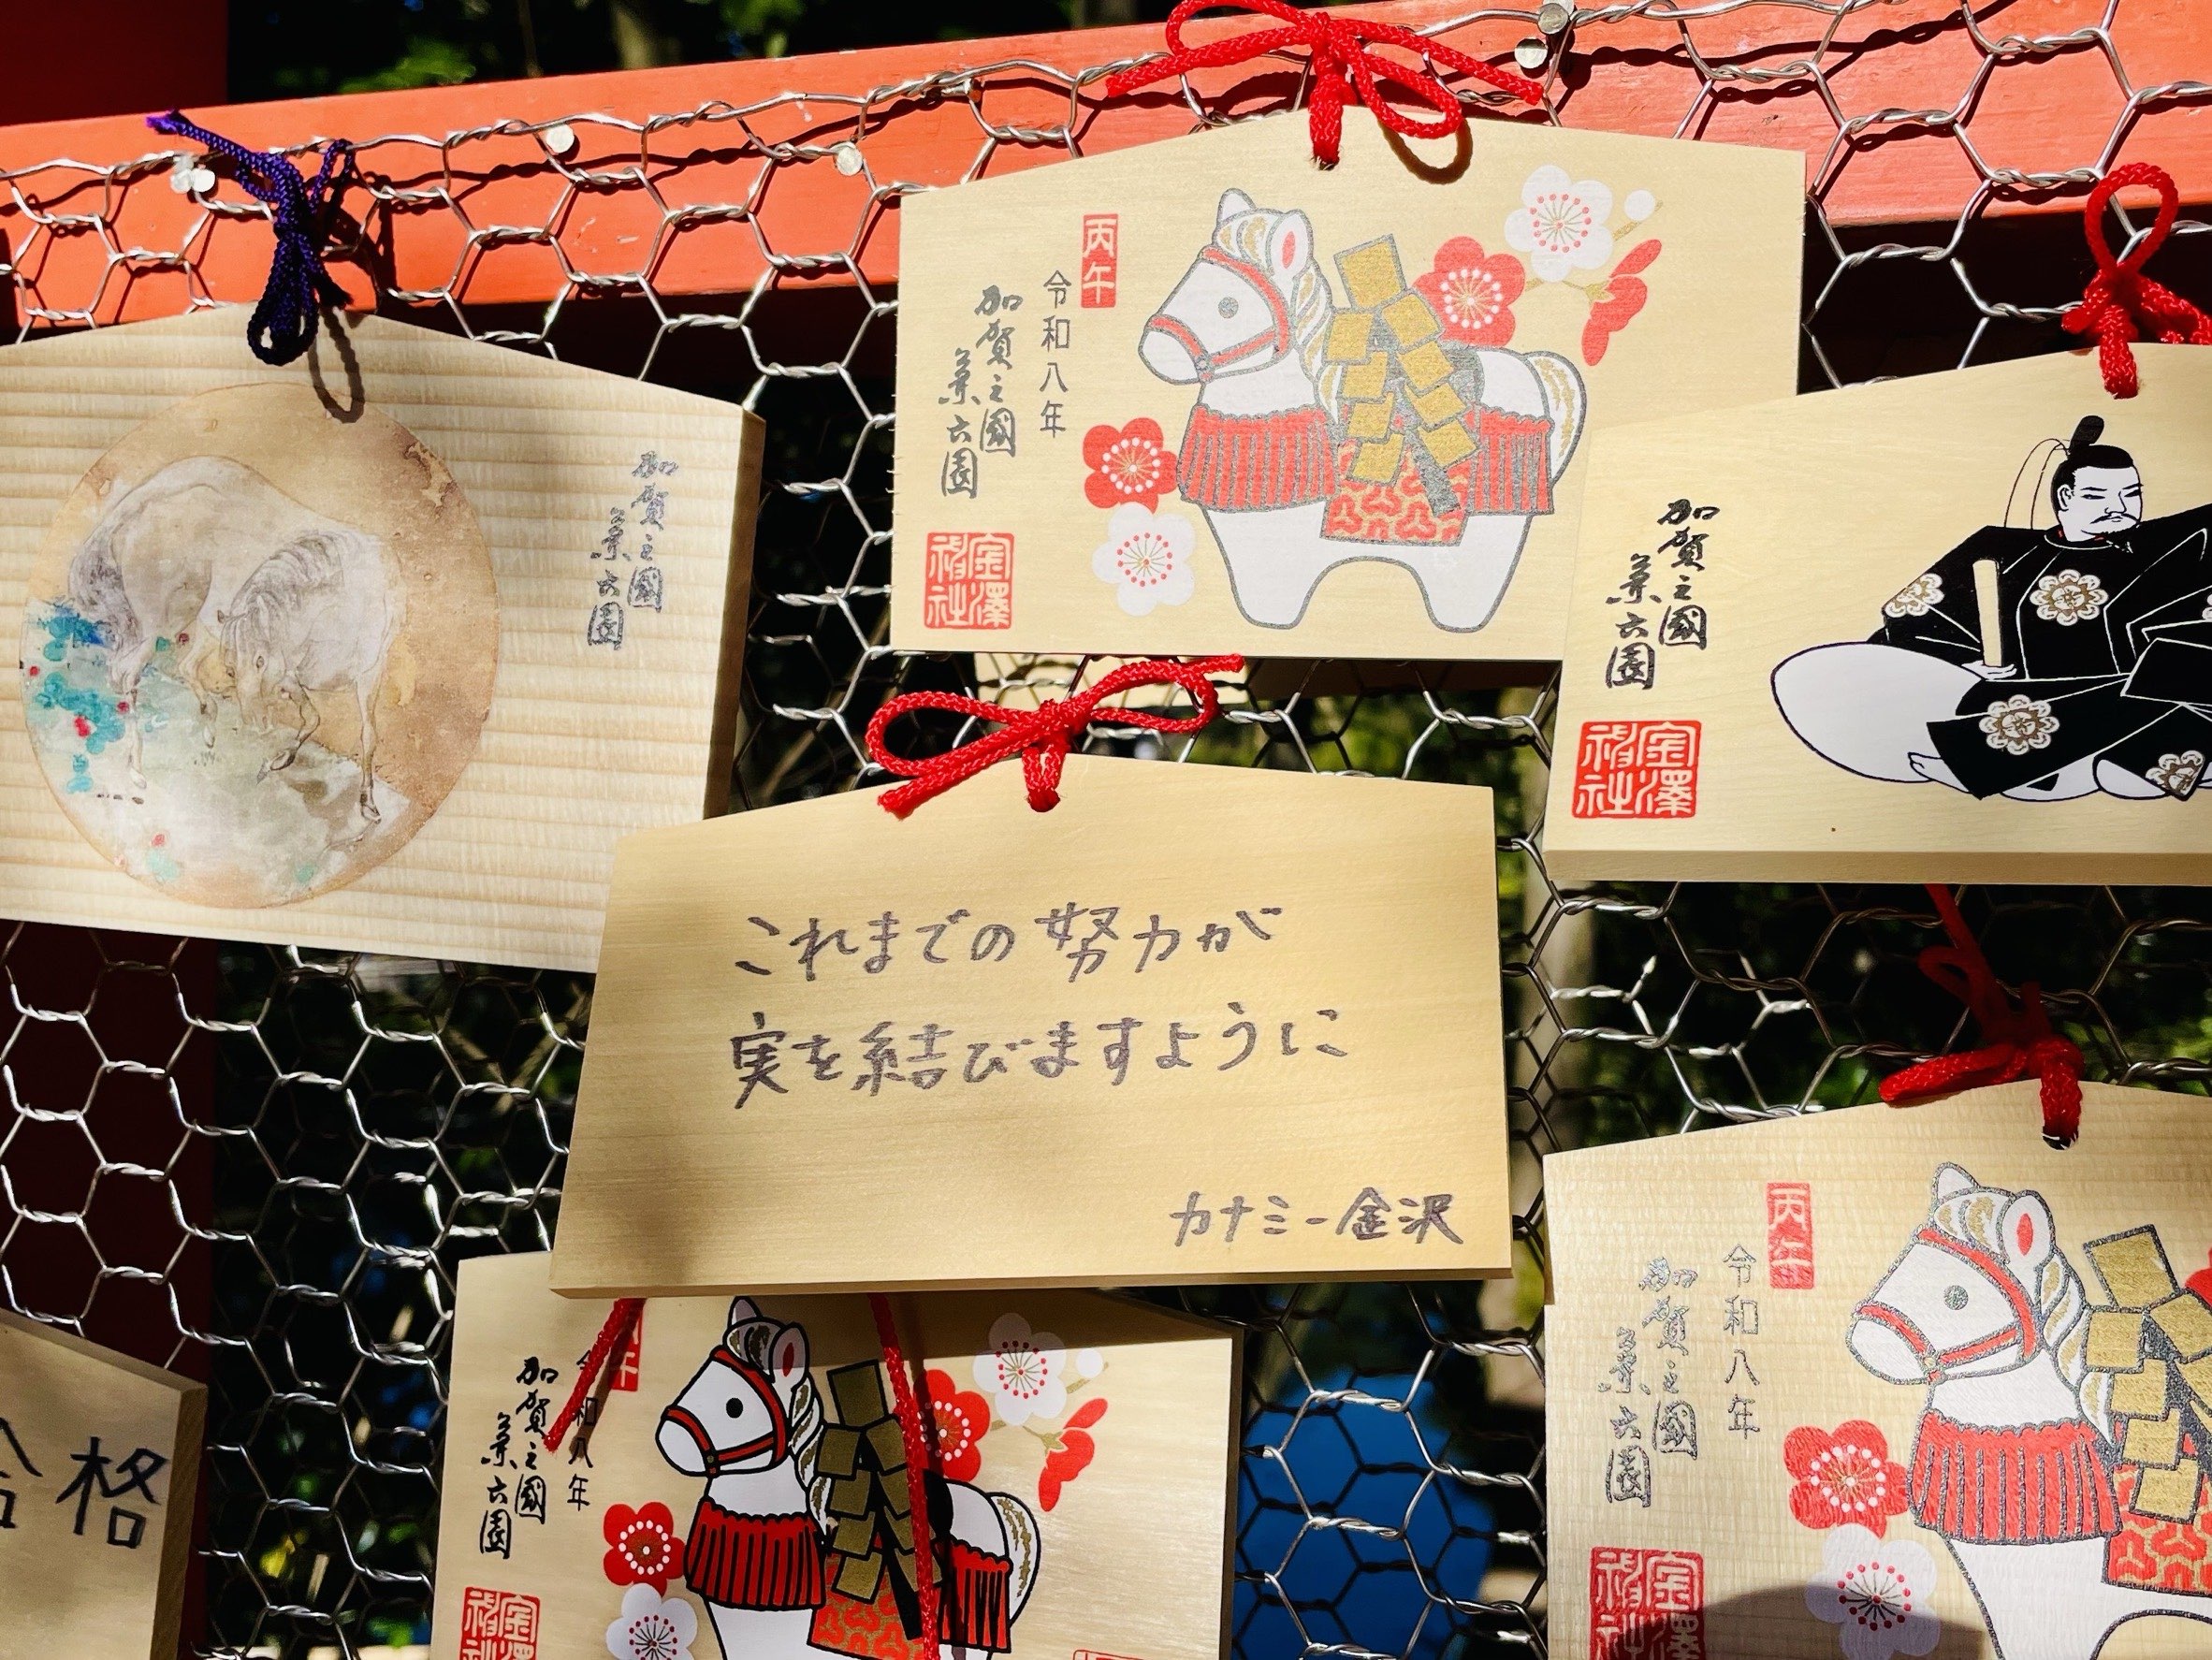 加賀之國
兼六園
丙午
令和八年
加賀之國
兼六園
金澤神社
加賀之國
兼六園
金澤神社
これまでの努力が
実を結びますように
カナミー金沢
丙午
令和八年
加賀之國
兼六園
金澤神社
午
和八年
加賀之國
兼六園
金澤神社
合格